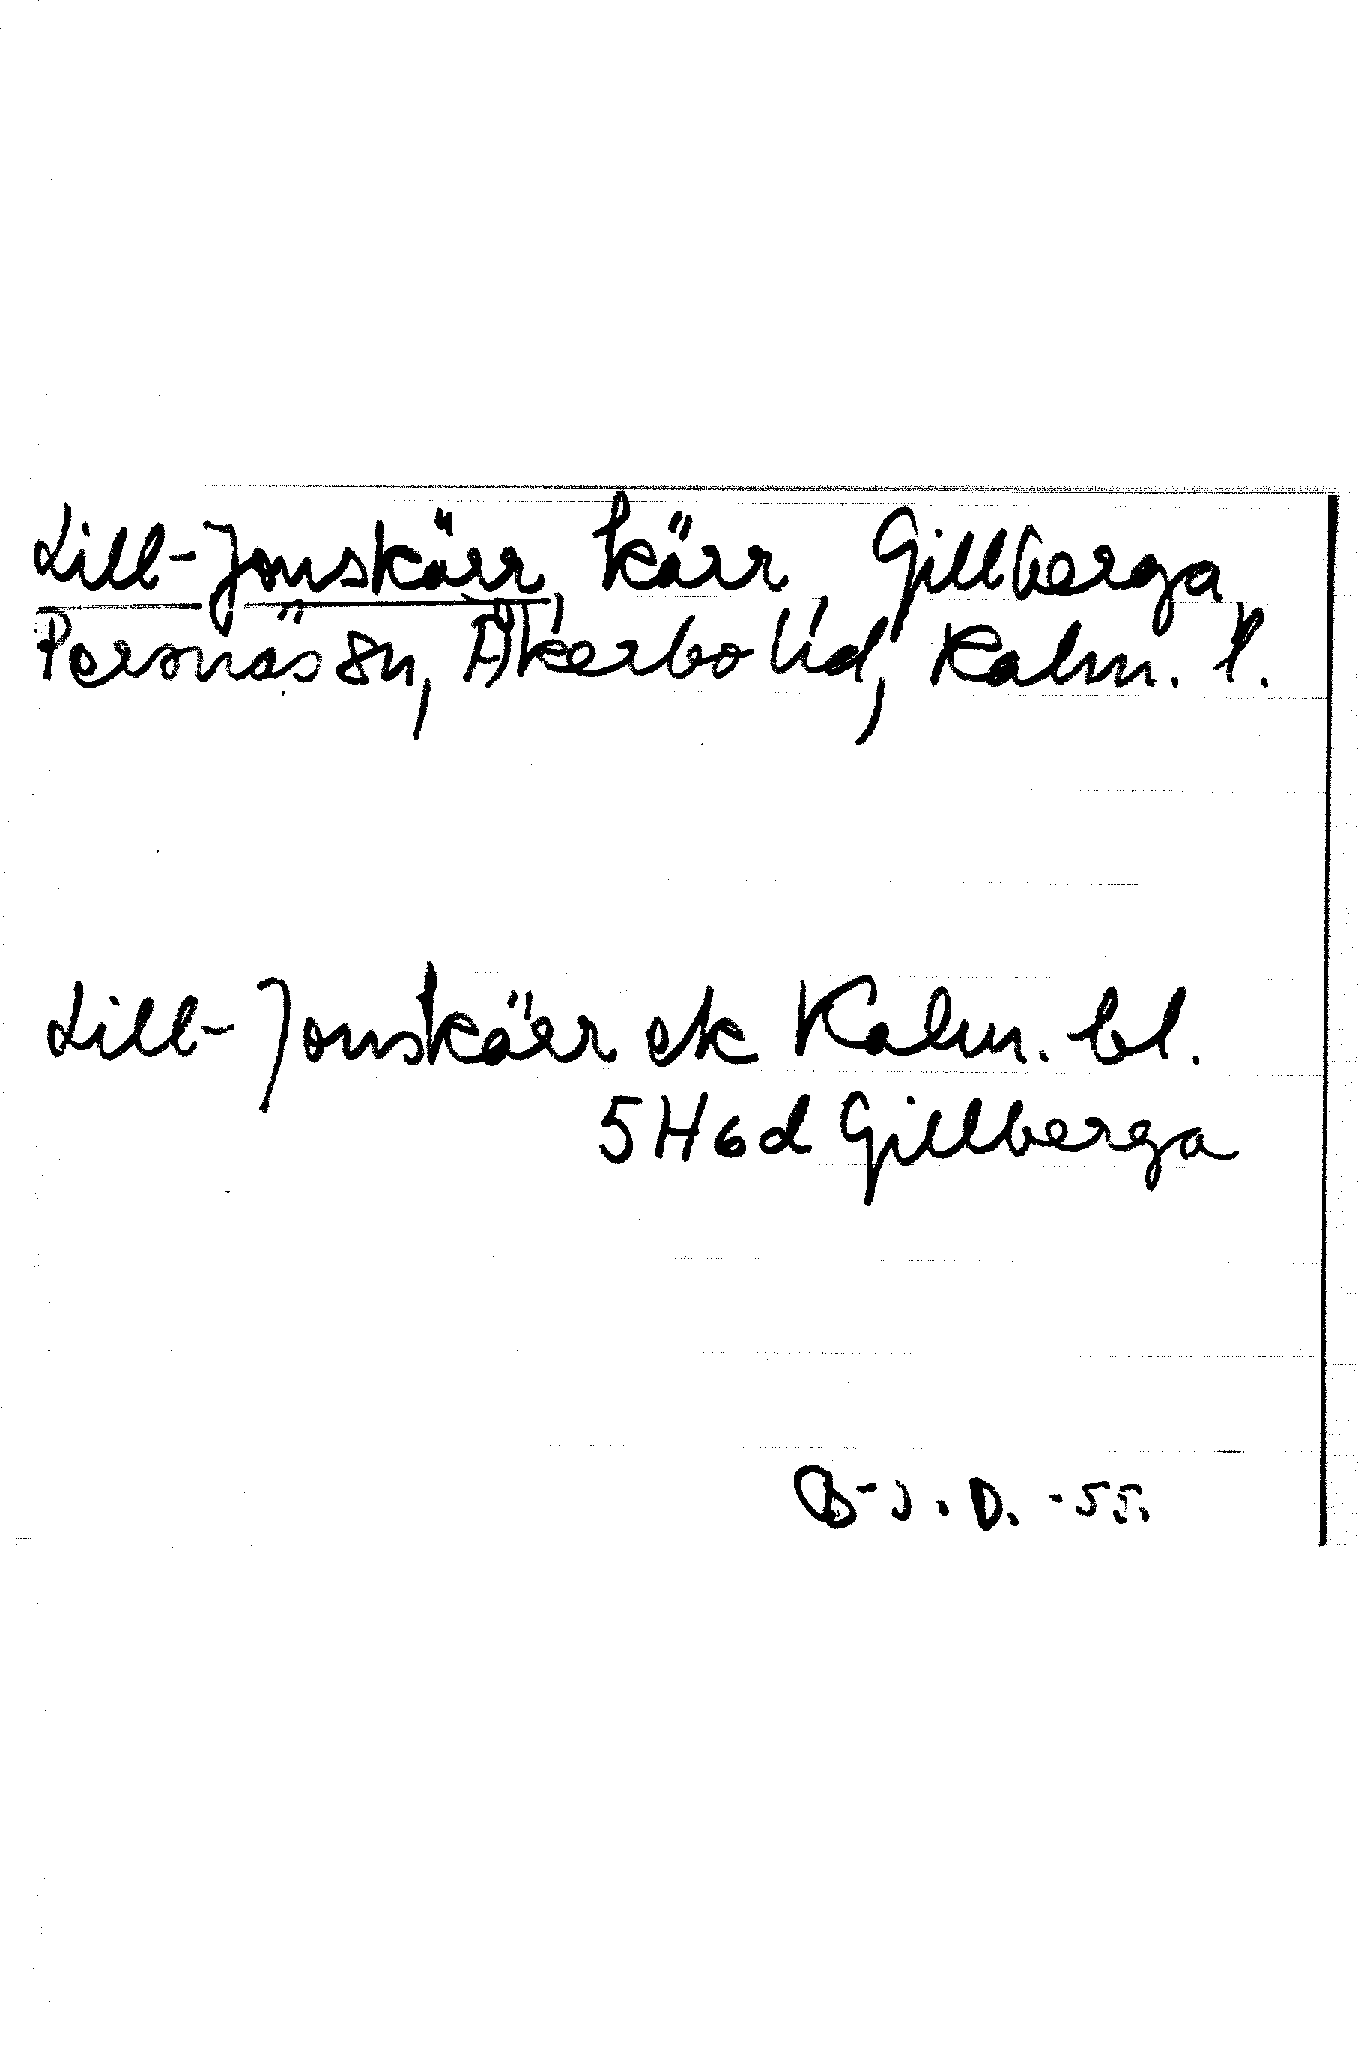 Lill-Jonskärr, kärr, Gillberga
Persnäs sn, Åkerbo hd, Kalm. l.
Lill-Jonskärr ek Kalm. bl.
5H6d Gillberga
B-J. D. -55.